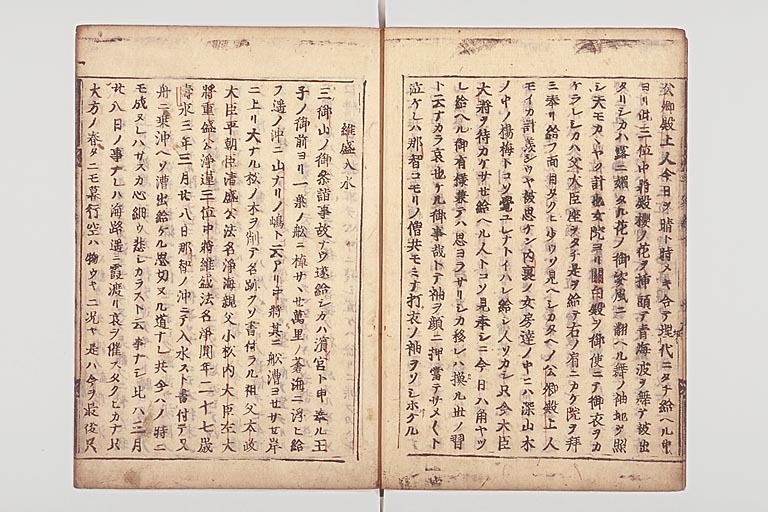 公卿殿上人今日ヲ晴ト時メキ合テ 代ニタチ給ヘル中
ヨリ 三位中将殿櫻ノ花ヲ挿頭テ青海波ヲ舞テ被出
タリシカハ露ニ媚タル花ノ御姿風ニ翻ヘル舞ノ袖地ヲ照
シ天モカヽヤク計也女院ヨリ関白殿ヲ御使ニテ御衣ヲカ
ケラレシカハ父大臣座ヲタチ是ヲ給テ右ノ肩ニカケ院ヲ拜
シ奉リ給フ面目タクヒ少ウソ見ヘシカタヘノ公卿殿上人
モイカ計羨シウヤ被思ケン内裏ノ女房達ノ中ニハ深山木
ノ中ノ楊梅トコソ覺ユレナトイハレ給シ人ソカシ只今大臣
大将ヲ待カケサせ給ヘル人トコソ見奉シニ今日ハ角ヤツ
レ給ヘル御有様兼テハ思ヨラサリシカ移レハ換ル世ノ習
ト云ナカラ哀也ケル御事哉トテ袖ヲ顔ニ押當テサメ〱ト
泣ケレハ那智コモリノ僧共モミナ打衣ノ袖ヲソシホケル
維盛入水
三御山ノ御参詣事故ナウ遂給シカハ濱宮ト申奉ル王
子ノ御前ヨリ一葉ノ舩ニ棹サヽせ萬里ノ蒼海ニ浮ヒ給
フ遥ノ沖ニ山ナリノ嶋ト云アリ中将其ニ舩漕ヨせサせ岸
ニ上リ大ナル松ノ木ヲ削テ名跡ヲソ書付ラル祖父太政
大臣平朝臣清盛公法名浄海親父小松内大臣左大
将重盛公浄蓮三位中将維盛法名浄圓年二十七歳
壽永三年三月廿八日那智ノ沖ニテ入水スト書付テ又
舟ニ乗沖ヘソ漕出給ケル思切ヌル道ナレ共今ハノ時ニ
モ成ヌレハサスカ心細ウ悲シカラスト云事ナシ比ハ三月
廿八日ノ事ナレハ海路遥ニ霞渡リ哀ヲ催スタクヒカナ只
大方ノ春タニモ暮行空ハ物ウキニ況ヤ是ハ今ヲ最後只